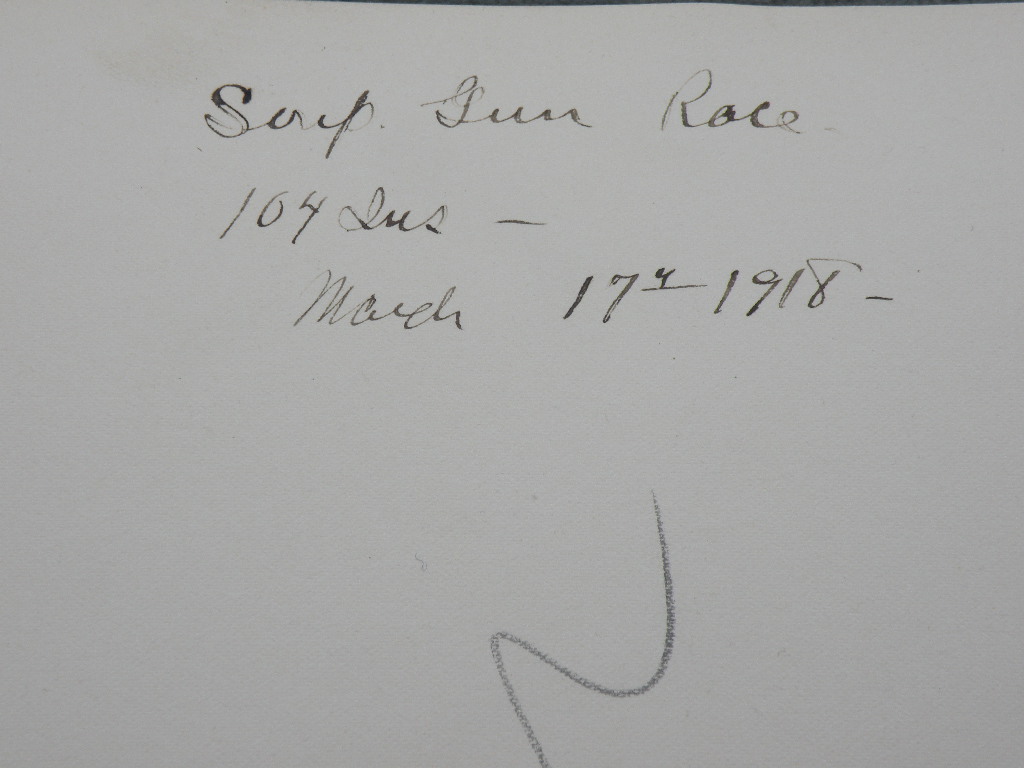 Gun Race
104 Ins —
March 17th 1918 –